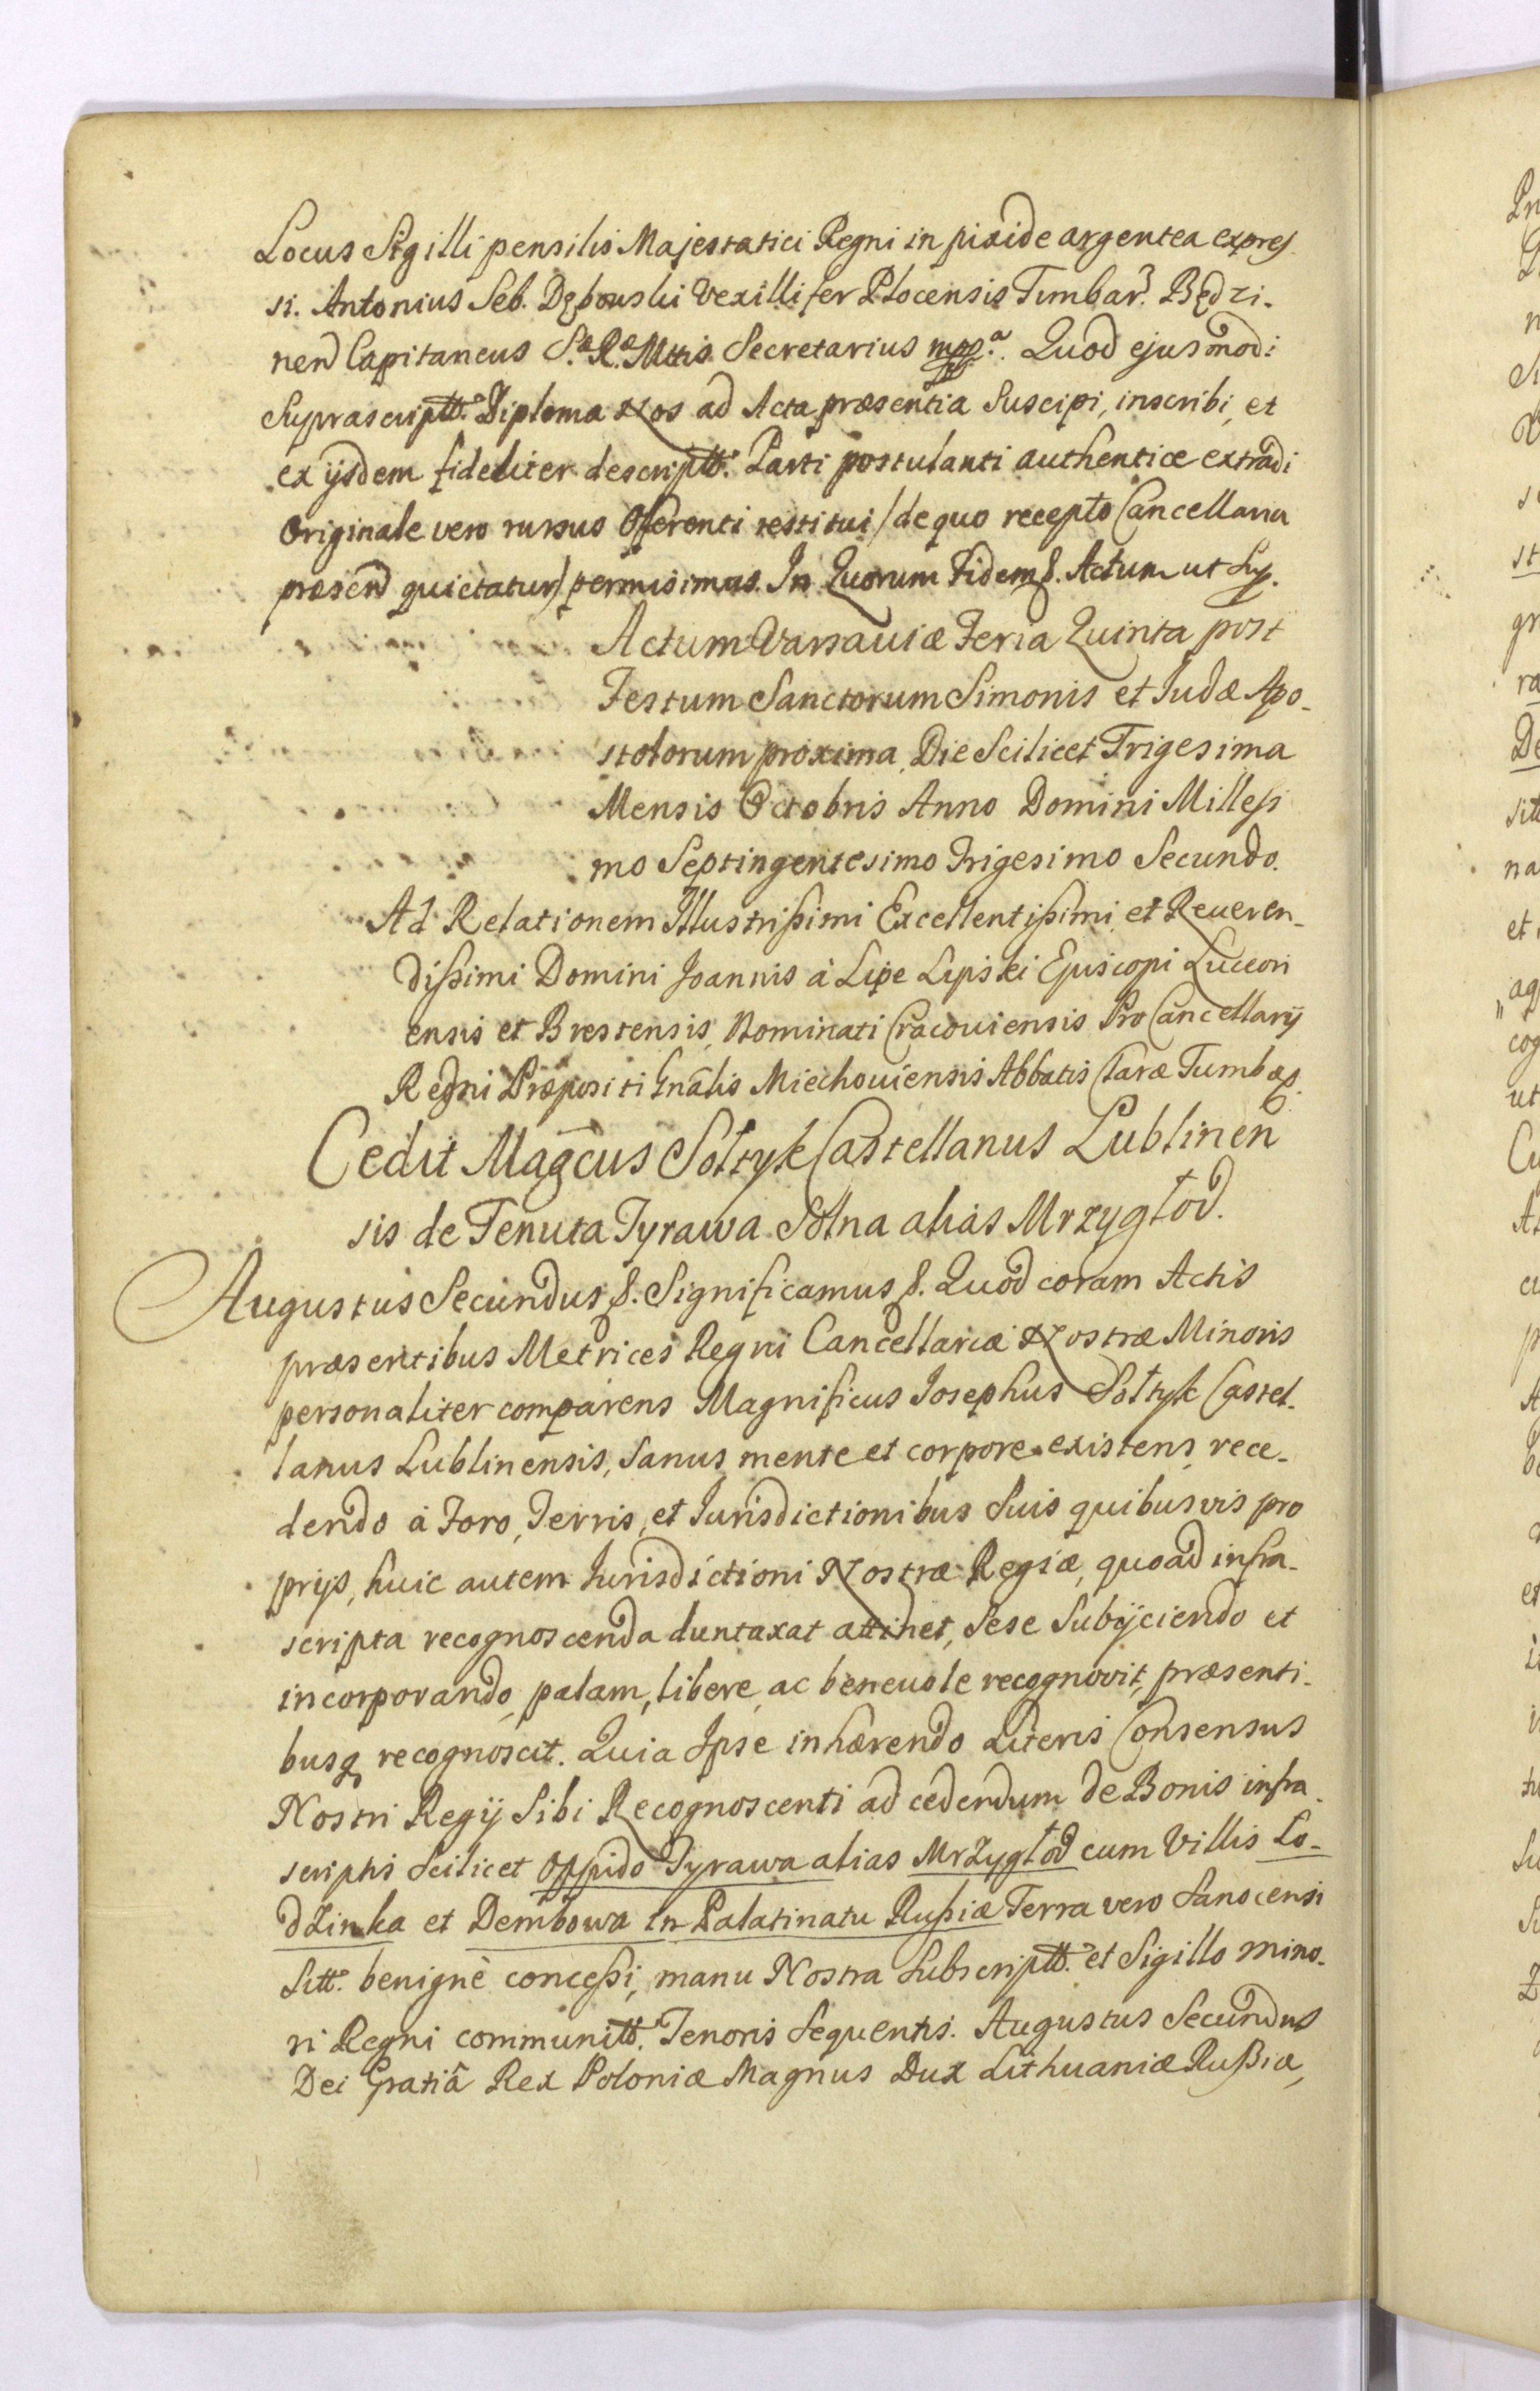 Locus Sigilli pensilis Majestatici Regni in pixide argentea expres
si. Antonius Seb. Dębowski Vexillifer Plocensis Tymbar. Będzi-
nen Capitaneus S.æ R.æ Mttis Secretarius mpp.a Quod ejusmodi
Suprascriptt. Diploma Nos ad Acta præsentia Suscipi, inscribi, et
ex ijsdem fideliter descriptt. Parti postulanti authentice extradi
Originale vero rursus Offerenti restitui /de quo recepto Cancellaria
præsen quietatur/ permisimus. In Quorum Fidem &. Actum ut Sup.
Actum Varsaviæ Feria Quinta post
Festum Sanctorum Simonis et Iudæ Apo-
stolorum proxima, Die Scilicet Trigesima
Mensis Octobris Anno Domini Millesi
mo Septingentesimo Trigesimo Secundo.
Ad Relationem Illustrißimi Excellentißimi et Reueren-
dißimi Domini Joannis à Lipe Lipski Episcopi Luceori
ensis et Brestensis, Nominati Cracouiensis Pro Cancellarij
Regni Præpositi Gnãlis Miechouiensis Abbatis Claræ Tumbæ &.
Cedit Magcus Sołtyk Castellanus Lublinen
sis de Tenuta Tyrawa Solna alias Mrzygłod.
Augustus Secundus &. Significamus &. Quod coram Actis
præsentibus Metrices Regni Cancellariæ Nostræ Minoris
personaliter comparens Magnificus Josephus Sołtyk Castel-
lanus Lublinensis, Sanus mente et corpore existens, rece-
dendo à Foro, Terris, et Jurisdictionibus Suis quibusvis pro
prijs, huic autem Jurisdictioni Nostræ Regiæ, quoad infra-
scripta recognoscenda duntaxat attinet, Sese Subijciendo et
incorporando, palam, libere, ac beneuole recognovit, præsenti-
busq recognoscit. Quia Ipse inhærendo Literis Consensus
Nostri Regij Sibi Recognoscenti ad cedendum de Bonis infra-
scriptis Scilicet Oppido Tyrawa alias Mrzygłod cum Villis Lo-
dzinka et Dembowa in Palatinatu Rußiæ Terra vero Sanocensi
Sitt. benignè conceßi, manu Nostra Subscriptt. et Sigillo mino-
ri Regni communitt. Tenoris Sequentis. Augustus Secundus
Dei Gratiâ Rex Poloniæ Magnus Dux Lithuaniæ Rußiæ,